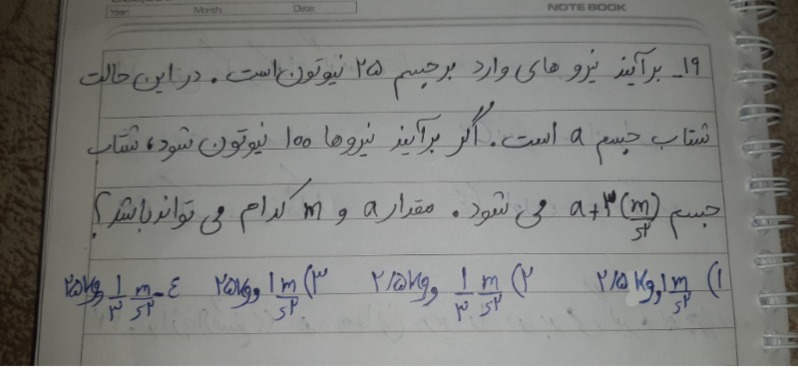 Year: Month: Date: NOTE BOOK
۱۹_ برآیند نیرو های وارد بر جسم ۲۵ نیوتون است. در این حالت
شتاب جسم a است. اگر برآیند نیروها ۱۰۰ نیوتون شود، شتاب
جسم a+۳(m/s۲) می شود. مقدار a و m کدام می تواند باشد؟
۱) ۱ m/s۲ و ۲/۵ kg ۲) ۱/۳ m/s۲ و ۲/۵ kg ۳) ۱ m/s۲ و ۲۵ kg ۴- ۱/۳ m/s۲ و ۲۵ kg